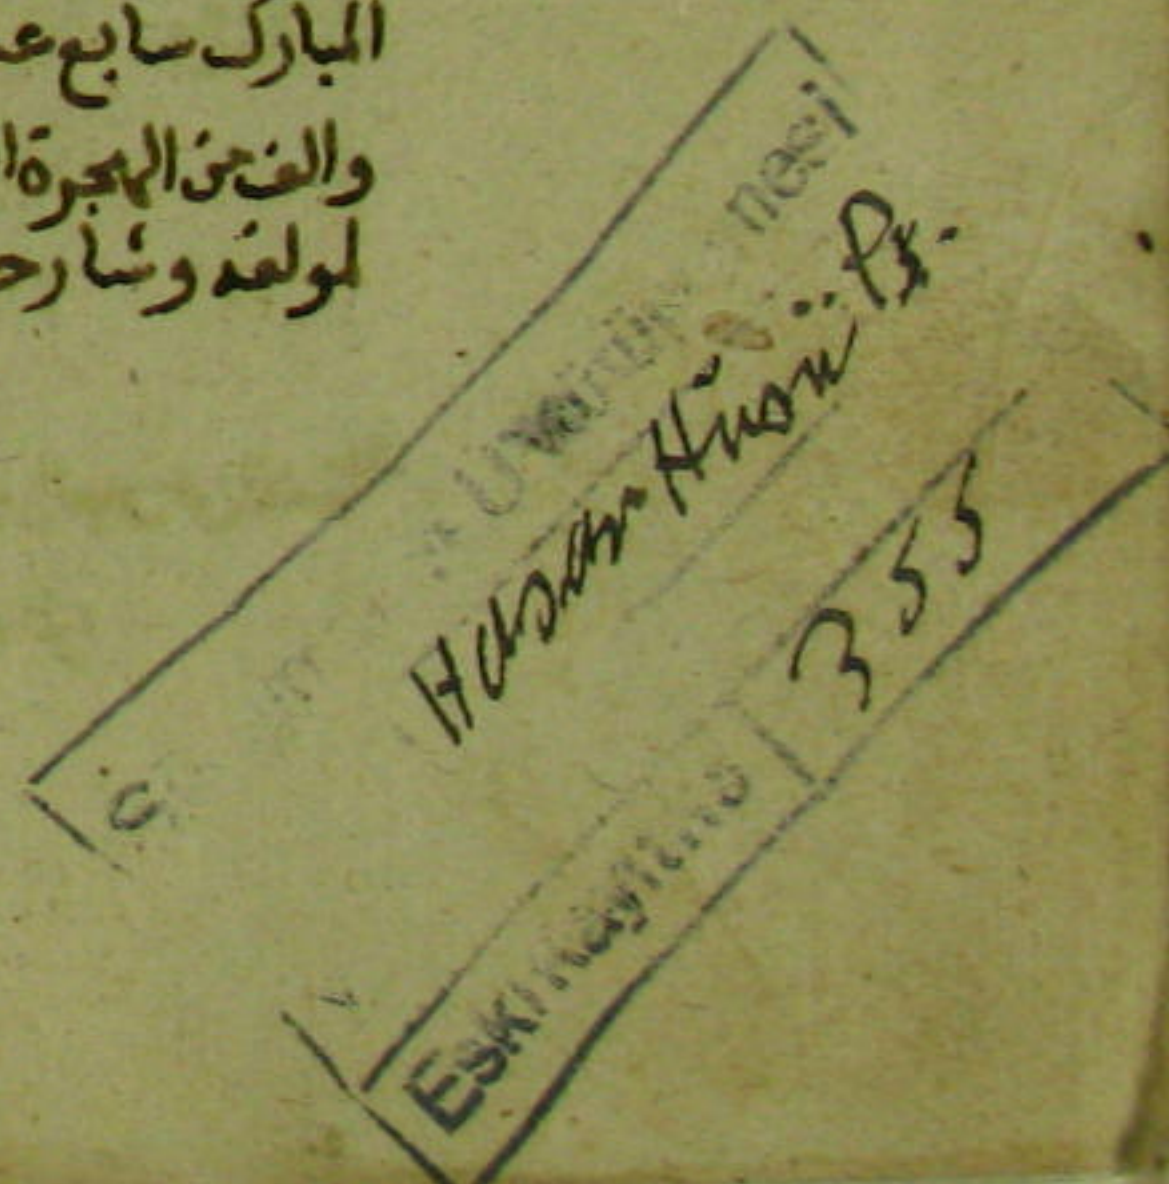 المبارك سابع عـ
والف من الهجرة ا
لمولفه وشارحـ
Hasan Hüsnü Pş.
Eski Kayıt No
355